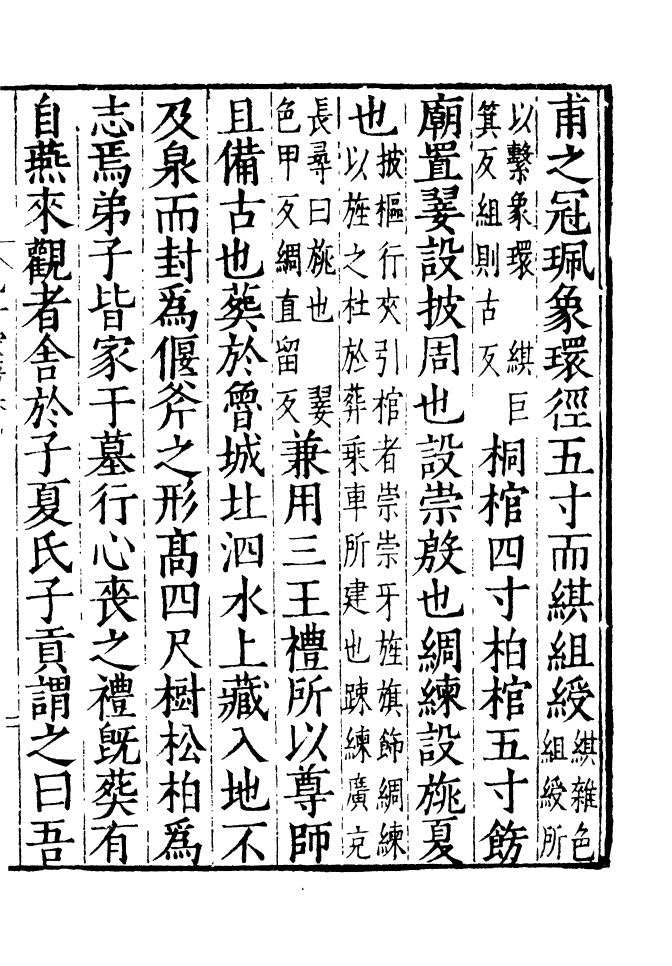 甫之冠珮象環徑五寸而綨組綬綨雜色組綬所
以繫象環　綨巨箕反組則古反桐棺四寸柏棺五寸飭
廟置翣設披周也設崇殷也綢練設旐夏
也披樞行夾引棺者崇崇牙旌旗飾綢練以旌之杜於葬乘車所建也踈練廣充
長尋曰旐也　翣色甲反綢直留反兼用三王禮所以尊師
且備古也葬於魯城北泗水上藏入地不
及泉而封爲偃斧之形髙四尺樹松柏爲
志焉弟子皆家于墓行心喪之禮旣葬有
自燕來觀者舍於子夏氏子貢謂之曰吾